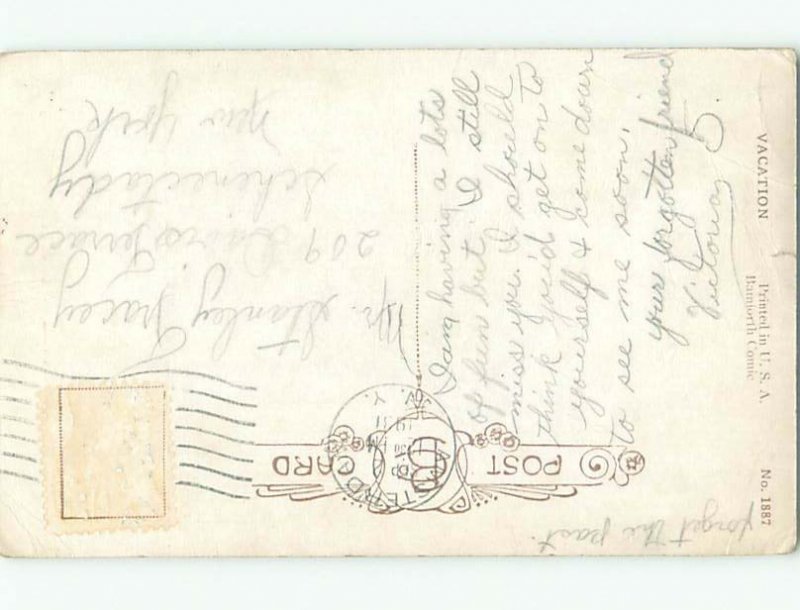 POST CARD
I am having a lots
of fun but I still
miss you. I should
think you'd get on to
yourself & come down
to see me soon.
your forgotten friend
Victoria
forget the past.
Mr. Stanley Tracey
209
Terrace
Schenectady
New York
VACATION
Printed in U. S. A.
Bamforth Comic
No. 1887